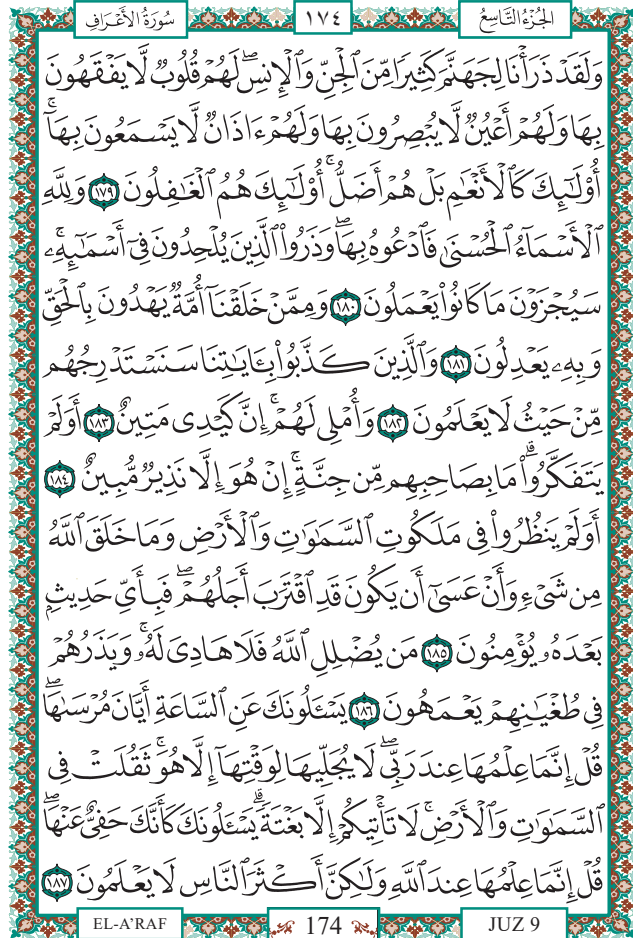 سُورَةُ الْأَعْرَافِ ١٧٤ الْجُزْءُ التَّاسِعُ
وَلَقَدْ ذَرَأْنَا لِجَهَنَّمَ كَثِيرًا مِّنَ ٱلْجِنِّ وَٱلْإِنسِۖ لَهُمْ قُلُوبٌ لَّا يَفْقَهُونَ
بِهَا وَلَهُمْ أَعْيُنٌ لَّا يُبْصِرُونَ بِهَا وَلَهُمْ ءَاذَانٌ لَّا يَسْمَعُونَ بِهَآۚ
أُو۟لَـٰٓئِكَ كَٱلْأَنْعَـٰمِ بَلْ هُمْ أَضَلُّۚ أُو۟لَـٰٓئِكَ هُمُ ٱلْغَـٰفِلُونَ ١٧٩ وَلِلَّهِ
ٱلْأَسْمَآءُ ٱلْحُسْنَىٰ فَٱدْعُوهُ بِهَاۖ وَذَرُوا۟ ٱلَّذِينَ يُلْحِدُونَ فِىٓ أَسْمَـٰٓئِهِۦۚ
سَيُجْزَوْنَ مَا كَانُوا۟ يَعْمَلُونَ ١٨٠ وَمِمَّنْ خَلَقْنَآ أُمَّةٌ يَهْدُونَ بِٱلْحَقِّ
وَبِهِۦ يَعْدِلُونَ ١٨١ وَٱلَّذِينَ كَذَّبُوا۟ بِـَٔايَـٰتِنَا سَنَسْتَدْرِجُهُم
مِّنْ حَيْثُ لَا يَعْلَمُونَ ١٨٢ وَأُمْلِى لَهُمْۚ إِنَّ كَيْدِى مَتِينٌ ١٨٣ أَوَلَمْ
يَتَفَكَّرُوا۟ۗ مَا بِصَاحِبِهِم مِّن جِنَّةٍۚ إِنْ هُوَ إِلَّا نَذِيرٌ مُّبِينٌ ١٨٤
أَوَلَمْ يَنظُرُوا۟ فِى مَلَكُوتِ ٱلسَّمَـٰوَٰتِ وَٱلْأَرْضِ وَمَا خَلَقَ ٱللَّهُ
مِن شَىْءٍ وَأَنْ عَسَىٰٓ أَن يَكُونَ قَدِ ٱقْتَرَبَ أَجَلُهُمْۖ فَبِأَىِّ حَدِيثٍۭ
بَعْدَهُۥ يُؤْمِنُونَ ١٨٥ مَن يُضْلِلِ ٱللَّهُ فَلَا هَادِىَ لَهُۥۚ وَيَذَرُهُمْ
فِى طُغْيَـٰنِهِمْ يَعْمَهُونَ ١٨٦ يَسْـَٔلُونَكَ عَنِ ٱلسَّاعَةِ أَيَّانَ مُرْسَىٰهَاۖ
قُلْ إِنَّمَا عِلْمُهَا عِندَ رَبِّىۖ لَا يُجَلِّيهَا لِوَقْتِهَآ إِلَّا هُوَۚ ثَقُلَتْ فِى
ٱلسَّمَـٰوَٰتِ وَٱلْأَرْضِۚ لَا تَأْتِيكُمْ إِلَّا بَغْتَةًۗ يَسْـَٔلُونَكَ كَأَنَّكَ حَفِىٌّ عَنْهَاۖ
قُلْ إِنَّمَا عِلْمُهَا عِندَ ٱللَّهِ وَلَـٰكِنَّ أَكْثَرَ ٱلنَّاسِ لَا يَعْلَمُونَ ١٨٧
EL-A'RAF 174 JUZ 9